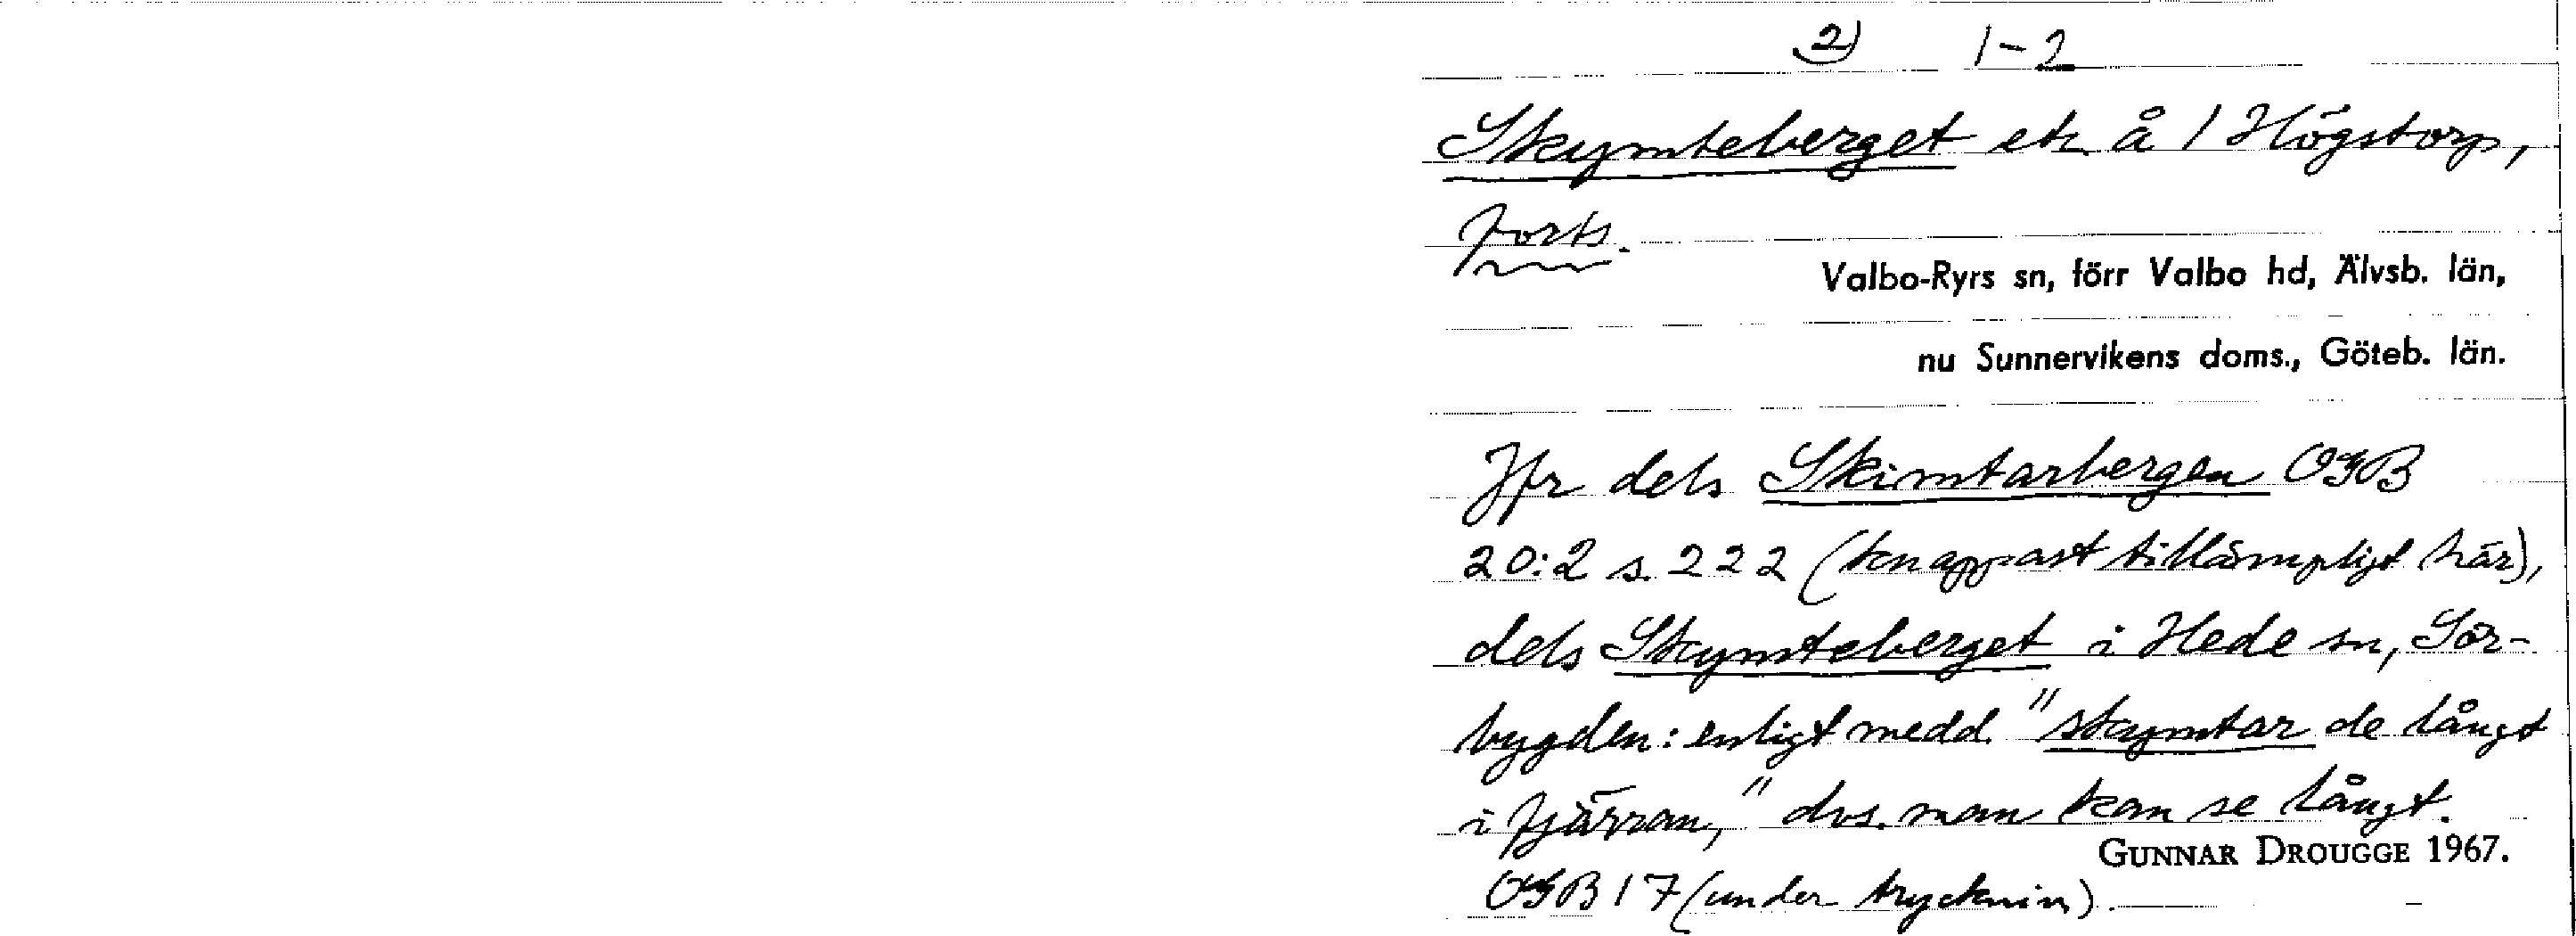 2) 1-2
Skymteberget etc. å 1 Högstorp,
forts.
Valbo-Ryrs sn, förr Valbo hd, Älvsb. län,
nu Sunnervikens doms., Göteb. län.
Jfr dels Skimtarbergen OGB
20:2 s. 222 (knappast tillämpligt här),
dels Skymteberget i Hede sn, Sör-
bygden: enligt medd. "skymtar de långt
i fjärran," dvs. man kan se långt.
GUNNAR DROUGGE 1967.
OGB 17 (under tryckning).